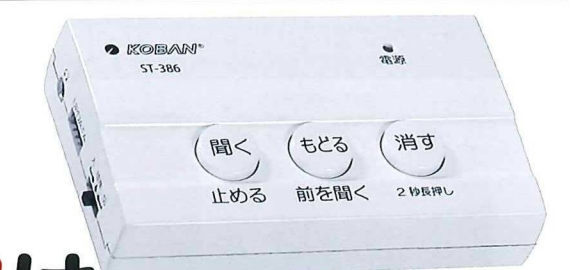 KOBAN®
ST-386
電源
聞く
もどる
消す
止める
前を聞く
2秒長押し
は